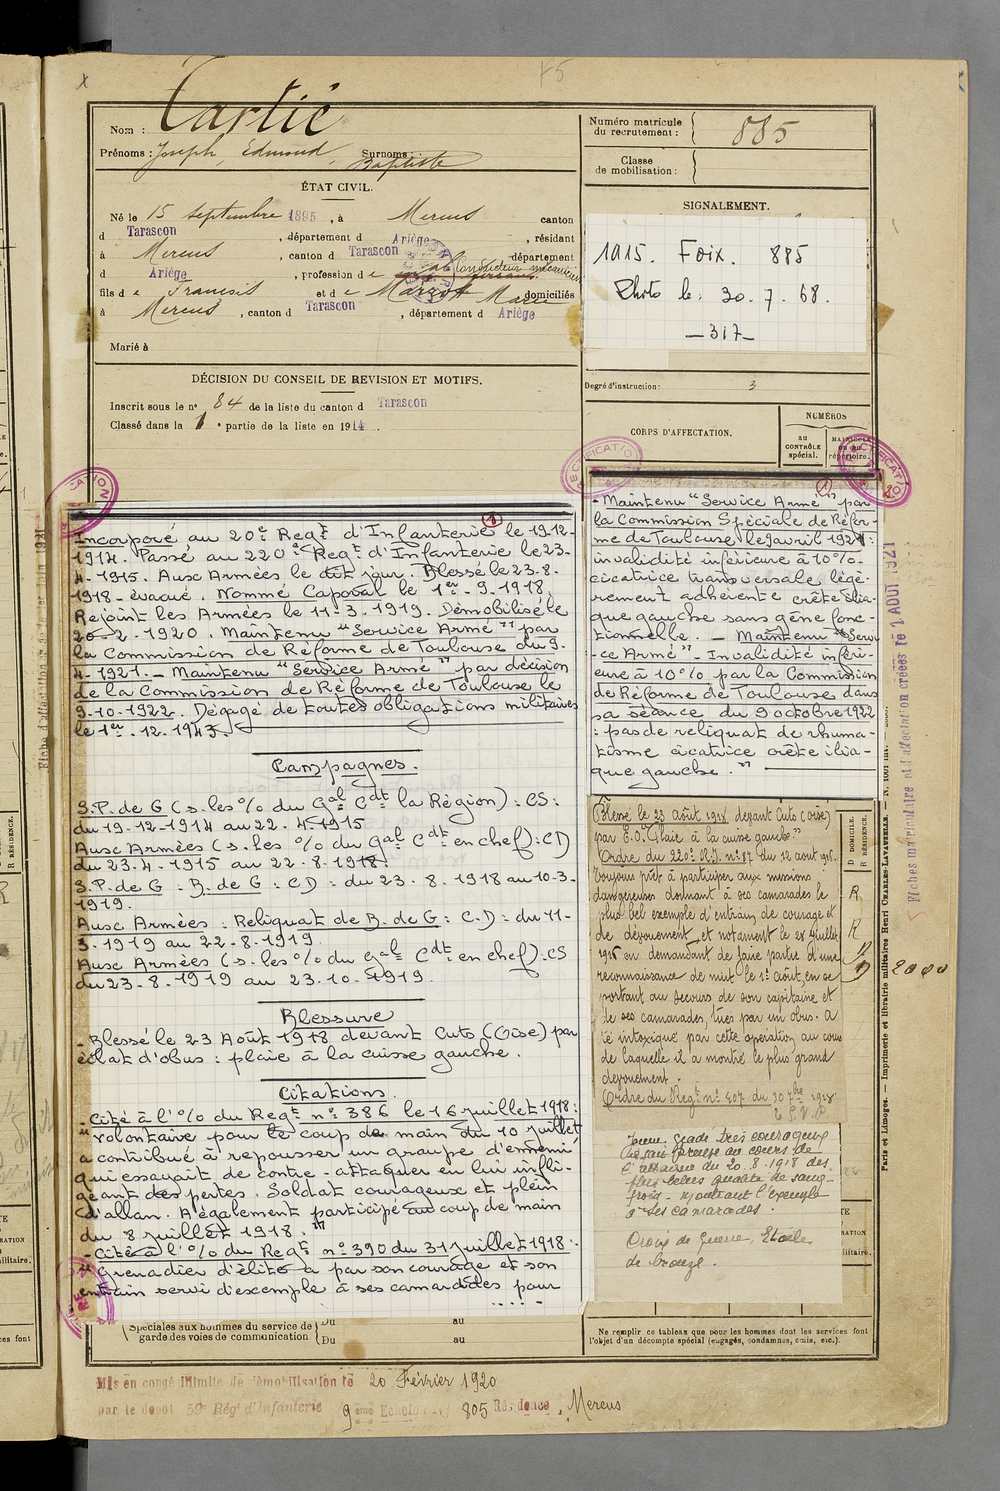 x
75
Nom : Tartié
Prénoms : Joseph, Edmond, Surnoms :
Baptiste
ÉTAT CIVIL.
Né le 15 septembre 1895, à Mercus canton
d Tarascon, département d Ariège, résidant
à Mercus, canton d Tarascon département
d Ariège, profession de Conducteur mécanicien
fils de François et de Marrot Marie domiciliés
à Mercus, canton d Tarascon, département d Ariège
Marié à
DÉCISION DU CONSEIL DE REVISION ET MOTIFS.
Inscrit sous le n° 84 de la liste du canton d Tarascon
Classé dans la 1e partie de la liste en 1914.
Numéro matricule
du recrutement : 885
Classe
de mobilisation :
SIGNALEMENT.
1915. Foix. 885
Photo le : 30.7.68.
_317_
Degré d'instruction : 3
CORPS D'AFFECTATION.
NUMÉROS
AU CONTRÔLE spécial.
MATRICULE ou au répertoire.
RECTIFICATION
Incorporé au 20e Regt d'Infanterie (1) le 19-12-
1914. Passé au 220e Regt d'Infanterie le 23-
4-1915. Aux Armées le dit jour. Blessé le 23.8.
1918 - évacué. Nommé Caporal le 1er-9-1918.
Rejoint les Armées le 11-3-1919. Démobilisé le
20-2-1920. Maintenu "Service Armé" par
la Commission de Réforme de Toulouse du 9.
4-1921. - Maintenu "Service Armé" par décision
de la Commission de Réforme de Toulouse le
9-10-1922. Dégagé de toutes obligations militaires
le 1er.12.1943.
Campagnes.
S.P. de G (s. les % du Gal Cdt la Région) : CS :
du 19-12-1914 au 22.4.1915
Aux Armées (s. les % du Gal Cdt en chef) : CD
du 23.4-1915 au 22-8-1918.
S.P. de G - B. de G : CD : du 23.8.1918 au 10-3-
1919.
Aux Armées : Reliquat de B. de G : C.D : du 11-
3-1919 au 22-8-1919.
Aux Armées (s. les % du Gal Cdt en chef) : CS
du 23-8-1919 au 23.10.1919.
Blessure
- Blessé le 23 Août 1918 devant Cuts (Oise) par
éclat d'obus : plaie à la cuisse gauche.
Citations.
- Cité à l'% du Regt n° 386 le 16 juillet 1918 :
" volontaire pour le coup de main du 10 juillet
a contribué à repousser un groupe d'ennemi
qui essayait de contre-attaquer en lui infli-
geant des pertes. Soldat courageux et plein
d'allan. A également participé au coup de main
du 8 juillet 1918. "
- Cité à l'% du Regt n° 390 du 31 juillet 1918 :
" Grenadier d'élite a par son courage et son
entrain servi d'exemple à ses camarades pour
.....
- Maintenu "Service Armé" (1) par
la Commission Spéciale de Réfor-
me de Toulouse le 9 avril 1921 :
invalidité inférieure à 10%-
cicatrice transversale légè-
rement adhérente crête ilia-
que gauche sans gêne fonc-
tionnelle. - Maintenu "Servi
-ce Armé" - Invalidité inféri-
eure à 10% par la Commission
de Réforme de Toulouse dans
sa séance du 9 octobre 1922
: pas de reliquat de rhuma-
tisme cicatrice crête ilia-
que gauche. "
Blessé le 23 août 1918 devant Cuts (Oise)
par E.O. Plaie à la cuisse gauche."
Ordre du 220e R.I. n° 87 du 12 août 1918.
Toujours prêt à participer aux missions
dangereuses donnant à ses camarades le
plus bel exemple d'entrain, de courage et
de dévouement, et notament le 28 juillet
1918 en demandant de faire partie d'une
reconnaissance de nuit le 1er août, en se
portant au secours de son capitaine et
de ses camarades, tués par un obus. A
été intoxiqué par cette opération au cours
de laquelle il a montré le plus grand
dévouement.
Ordre du Regt n° 407 du 30 7bre 1918
Jeune gradé très courageux
a fait preuve au cours de
l'attaque du 20.8.1918 des
plus belles qualités de sang-
froid - montrant l'exemple
à ses camarades.
Croix de Guerre, Etoile
de bronze.
D DOMICILE.
R RÉSIDENCE.
R
R
D
2000
Fiches matriculaire et d'affectation créées le 1 AOUT 1921
Paris et Limoges. — Imprimerie et librairie militaires Henri CHARLES-LAVAUZELLE.
Spéciales aux hommes du service de
garde des voies de communication
Du au
Du au
Ne remplir ce tableau que pour les hommes dont les services font
l'objet d'un décompte spécial (engagés, condamnés, omis, etc.).
Mis en congé illimité de démobilisation le 20 Février 1920
par le dépôt 59e Régt d'Infanterie 9eme Echelon N° 805 Résidence, Mercus